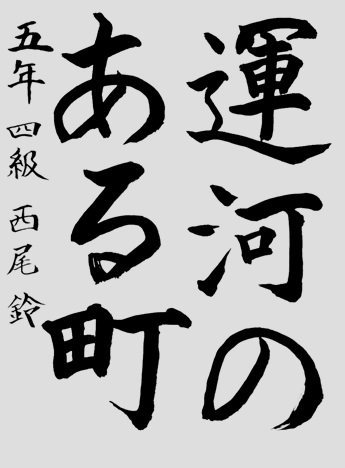 運河の
ある町
五年 四級 西尾 鈴